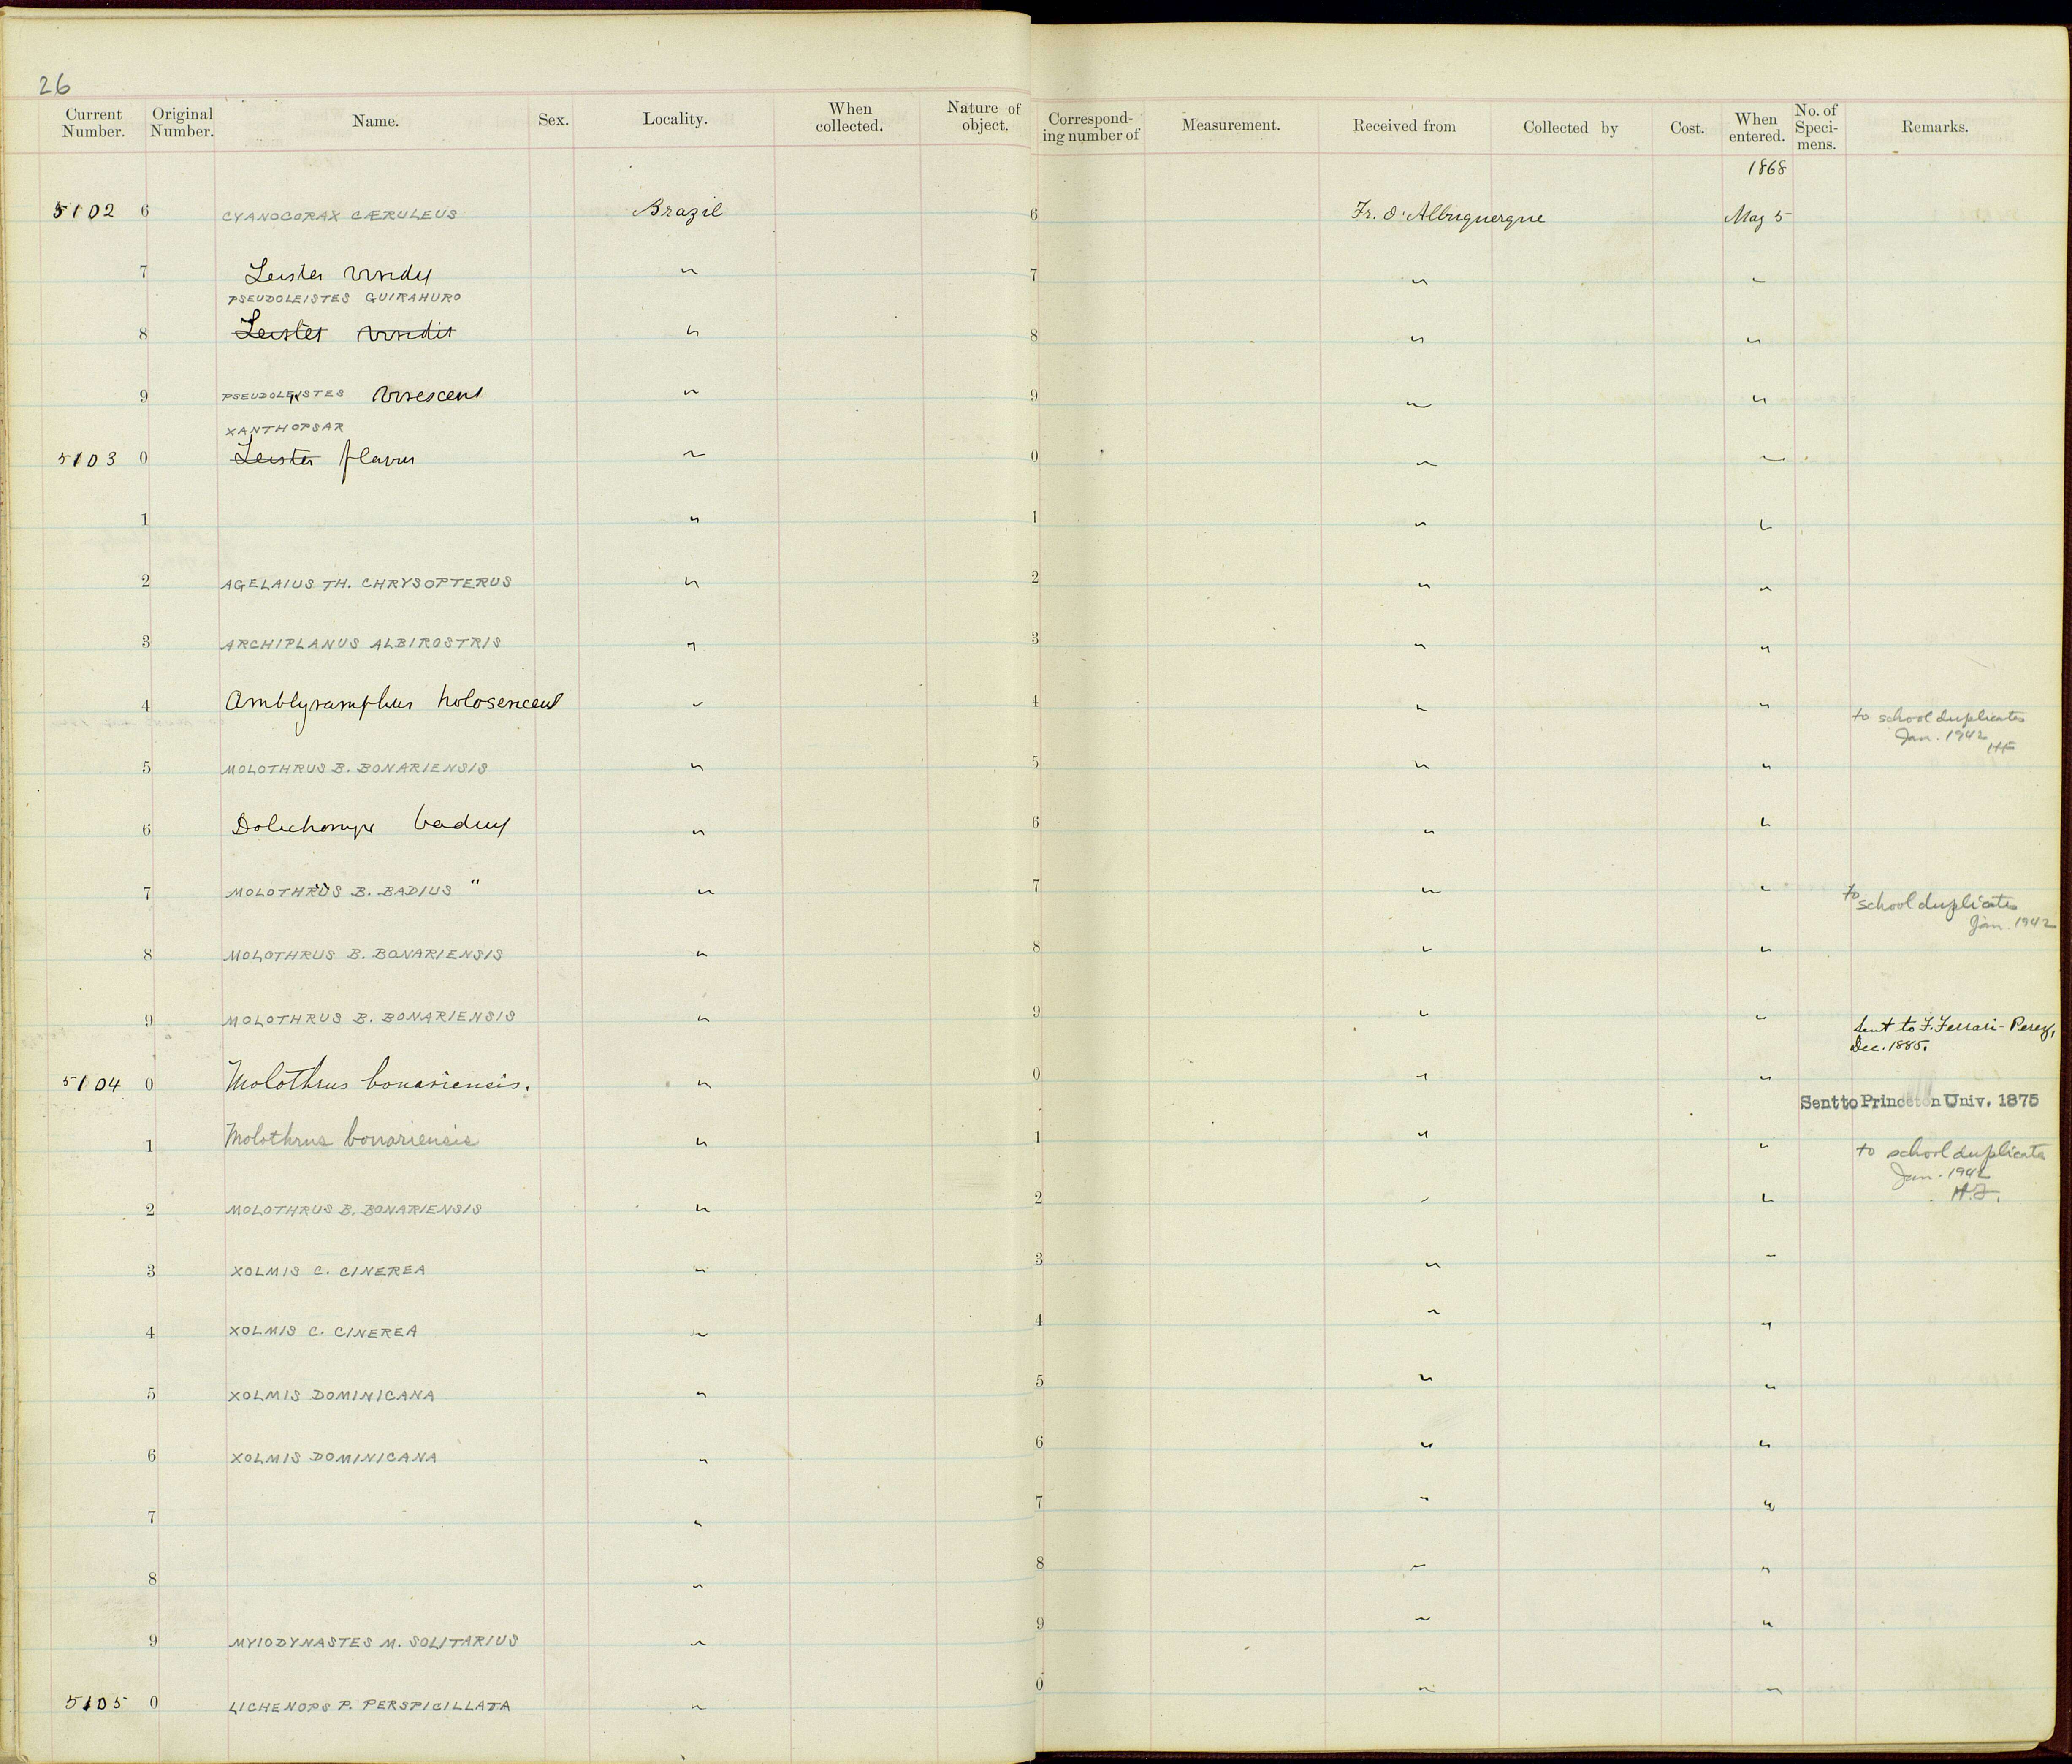 26
Current Number. Original Number. Name. Sex. Locality. When collected. Nature of object. Correspond-ing number of Measurement. Received from Collected by Cost. When entered. No. of Speci-mens. Remarks.
1868
5102 6 CYANOCORAX CÆRULEUS Brazil 6 Fr. d'Albuquerque May 5
7 Leistes viridis " 7 " "
PSEUDOLEISTES GUIRAHURO
8 Leistes viridis " 8 " "
9 PSEUDOLEISTES virescens " 9 " "
XANTHOPSAR
5103 0 Leistes flavus " 0 " "
1 " 1 " "
2 AGELAIUS TH. CHRYSOPTERUS " 2 " "
3 ARCHIPLANUS ALBIROSTRIS " 3 " "
4 Amblyramphus holosericeus " 4 " " to school duplicates
Jan. 1942
HF
5 MOLOTHRUS B. BONARIENSIS " 5 " "
6 Dolichonyx badius " 6 " "
7 MOLOTHRUS B. BADIUS " " 7 " " to school duplicates
Jan. 1942
8 MOLOTHRUS B. BONARIENSIS " 8 " "
9 MOLOTHRUS B. BONARIENSIS " 9 " " Sent to F. Ferrari-Perez,
Dec. 1885.
5104 0 Molothrus bonariensis. " 0 " "
Sent to Princeton Univ. 1875
1 Molothrus bonariensis " 1 " " to school duplicate
Jan. 1942
H.F.
2 MOLOTHRUS B. BONARIENSIS " 2 " "
3 XOLMIS C. CINEREA " 3 " "
4 XOLMIS C. CINEREA " 4 " "
5 XOLMIS DOMINICANA " 5 " "
6 XOLMIS DOMINICANA " 6 " "
7 " 7 " "
8 " 8 " "
9 MYIODYNASTES M. SOLITARIUS " 9 " "
5105 0 LICHENOPS P. PERSPICILLATA " 0 " "